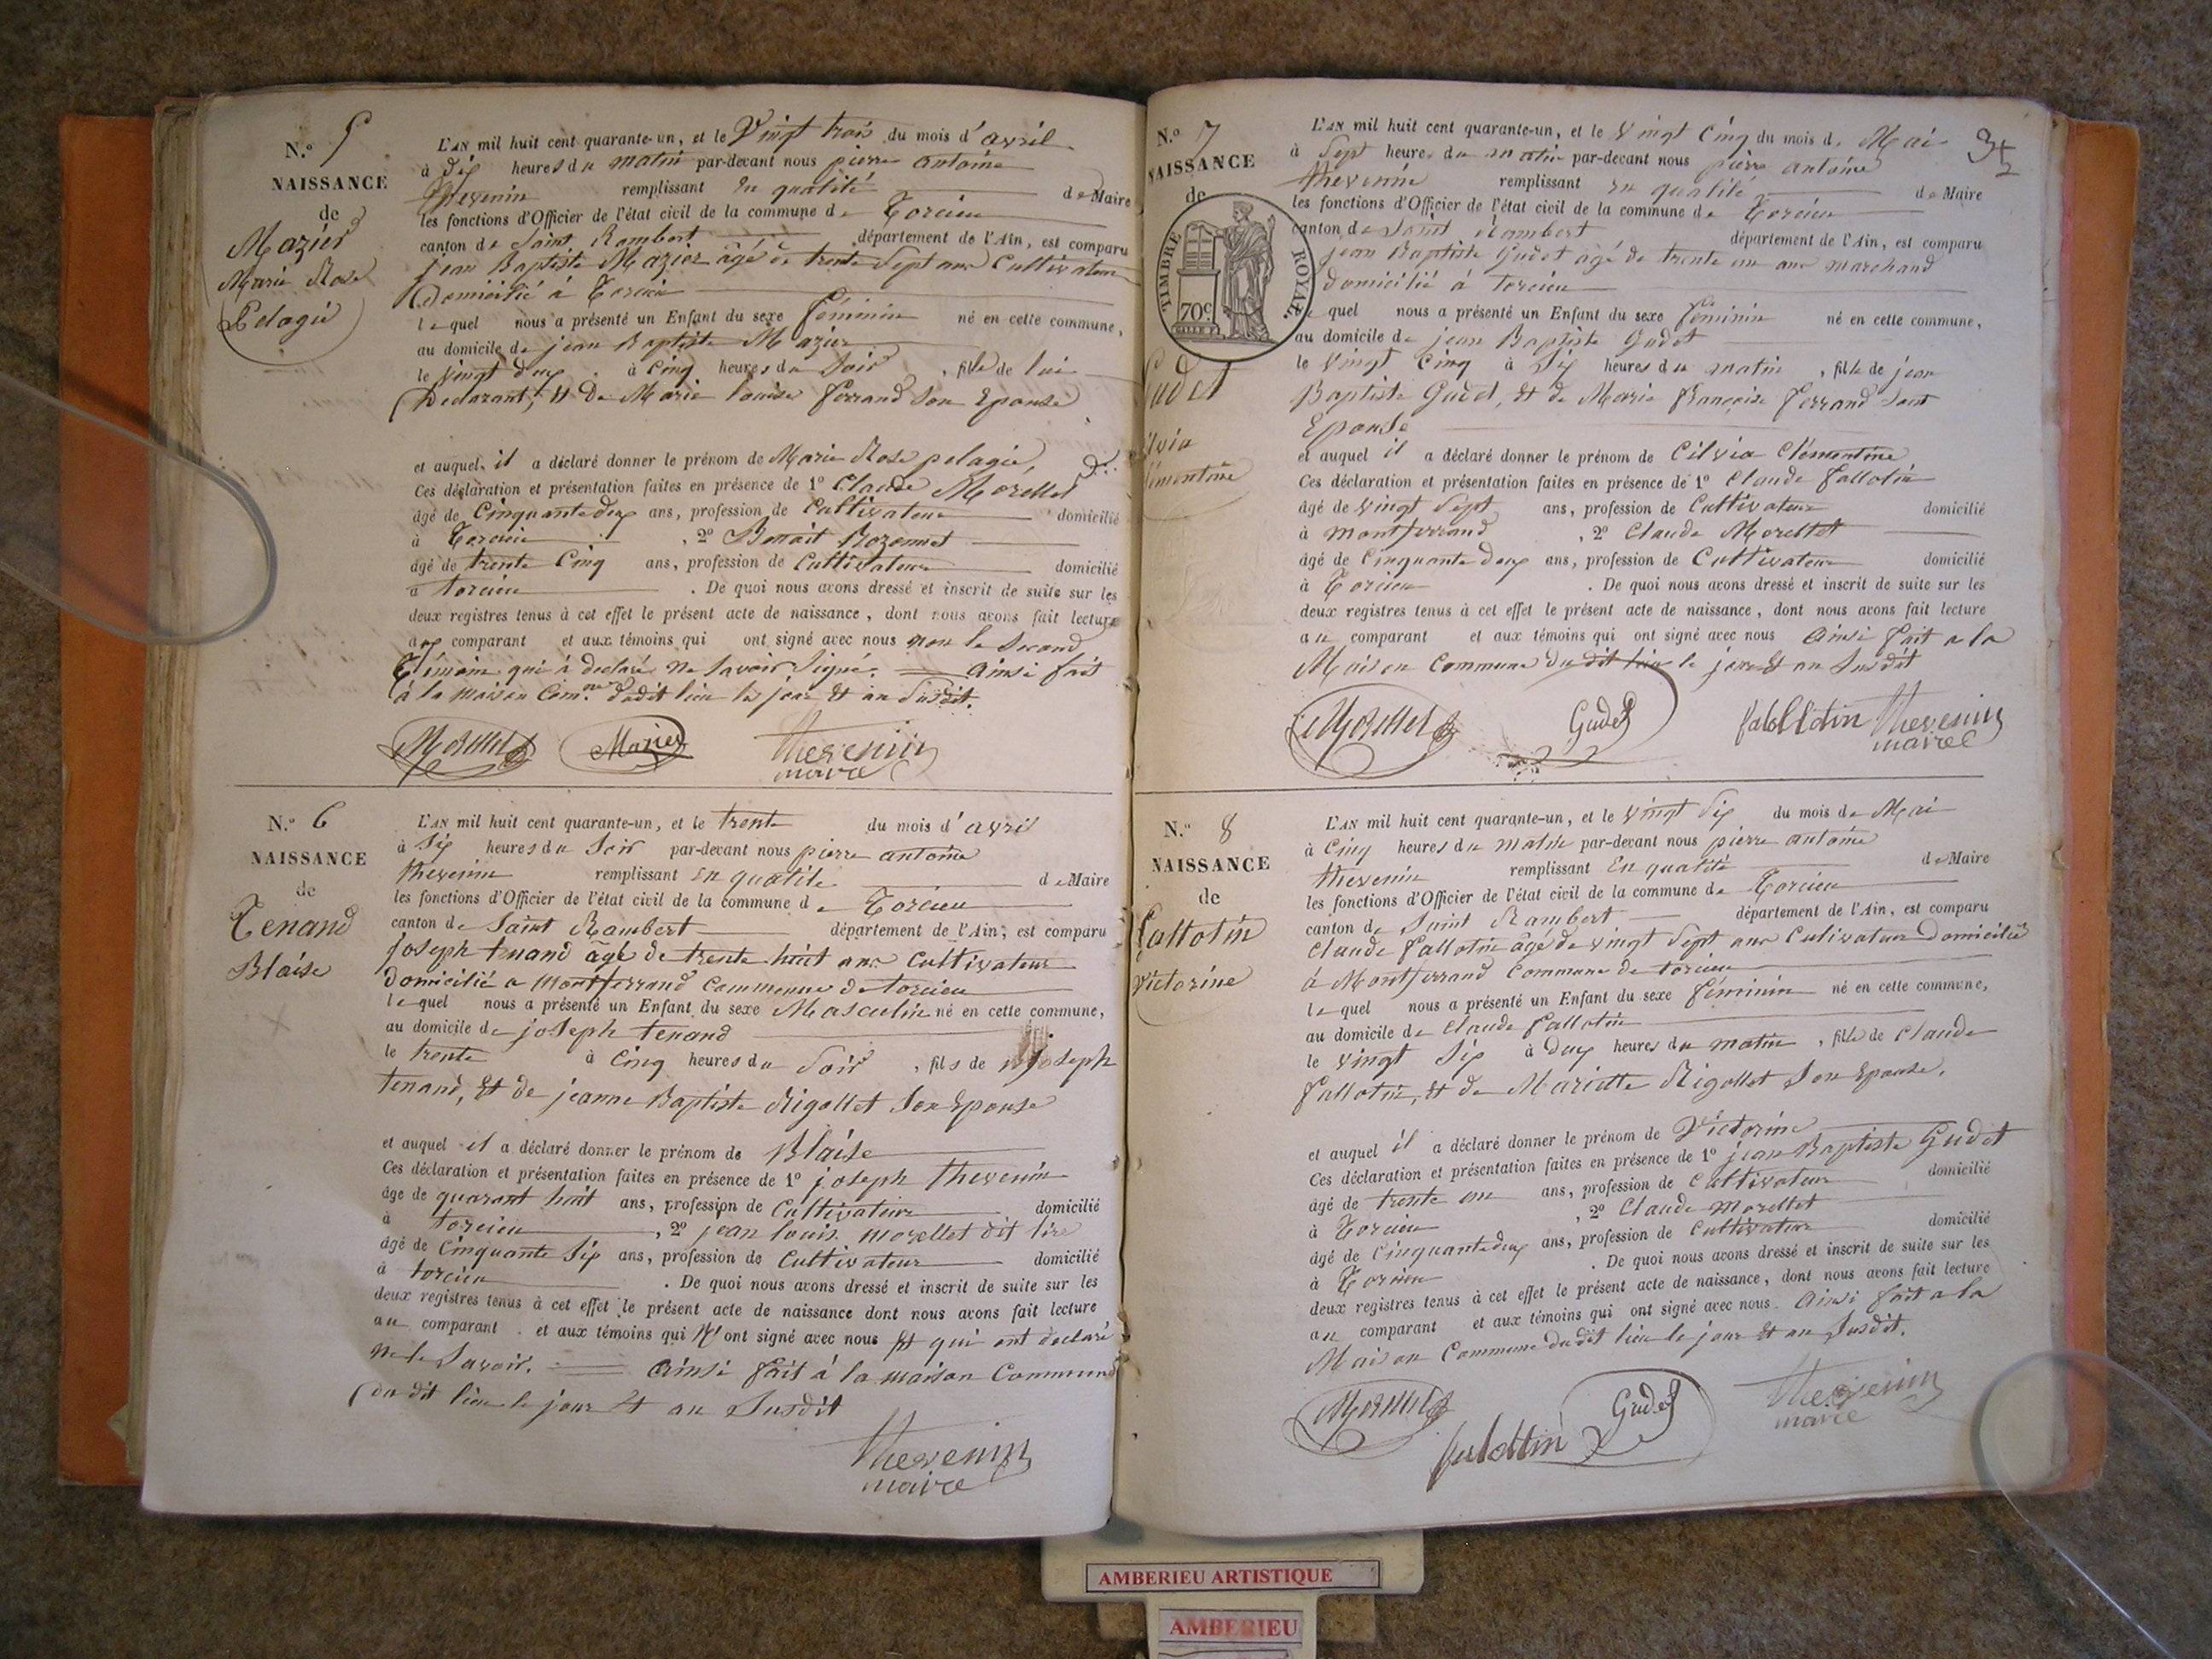 N.º 5
NAISSANCE
de
Mazier
Marie Rose
Pelagie
L'AN mil huit cent quarante-un, et le Vingt trois du mois d'avril
à dix heures du matin par-devant nous pierre antoine
thevenin remplissant en qualité de Maire
les fonctions d'Officier de l'état civil de la commune de Torcieu
canton de Saint Rambert département de l'Ain, est comparu
jean Baptiste Mazier âgé de trente Sept ans Cultivateur
Domicilié à Torcieu
lequel nous a présenté un Enfant du sexe féminin né en cette commune,
au domicile de jean Baptiste Mazier
le vingt deux à Cinq heures du Soir, fille de lui
Declarant, et De Marie louise ferrand Son Epouse
et auquel il a déclaré donner le prénom de Marie Rose pelagie,
Ces déclaration et présentation faites en présence de 1º Claude Morellet
âgé de Cinquante deux ans, profession de Cultivateur domicilié
à Torcieu, 2º Benoit
âgé de trente Cinq ans, profession de Cultivateur domicilié
à torcieu. De quoi nous avons dressé et inscrit de suite sur les
deux registres tenus à cet effet le présent acte de naissance, dont nous avons fait lecture
au comparant et aux témoins qui ont signé avec nous non le Second
Témoin qui à declaré ne Savoir Signé. Ainsi fait
à la maison Com.ne dudit lieu les jour et an Susdit.
Morellet Mazier thevenin
maire
N.º 6
NAISSANCE
de
Tenand
Blaise
L'AN mil huit cent quarante-un, et le trente du mois d'avril
à Six heures du Soir par-devant nous pierre antoine
thevenin remplissant en qualité de Maire
les fonctions d'Officier de l'état civil de la commune de Torcieu
canton de Saint Rambert département de l'Ain, est comparu
joseph tenand âgé de trente huit ans Cultivateur
domicilié a montferrand Commune de torcieu
lequel nous a présenté un Enfant du sexe Masculin né en cette commune,
au domicile de joseph tenand
le trente à Cinq heures du Soir, fils de joseph
tenand, et de jeanne Baptiste Rigollet Son Epouse
et auquel il a déclaré donner le prénom de Blaise
Ces déclaration et présentation faites en présence de 1º joseph thevenin
âgé de quarant huit ans, profession de Cultivateur domicilié
à torcieu, 2º jean louis morellet dit
âgé de Cinquante Six ans, profession de Cultivateur domicilié
à torcieu. De quoi nous avons dressé et inscrit de suite sur les
deux registres tenus à cet effet le présent acte de naissance dont nous avons fait lecture
au comparant et aux témoins qui N'ont signé avec nous et qui ont declaré
ne le Savoir. Ainsi fait à la maison Commune
du dit lieu le jour et an Susdit
thevenin
maire
N.º 7
NAISSANCE
de
TIMBRE ROYAL
70c
Gudet
ilvia
lémentine
35
L'AN mil huit cent quarante-un, et le vingt Cinq du mois de Mai
à Sept heures du matin par-devant nous pierre antoine
thevenin remplissant en qualité de Maire
les fonctions d'Officier de l'état civil de la commune de Torcieu
canton de Saint Rambert département de l'Ain, est comparu
jean Baptiste Gudet âgé de trente un ans marchand
domicilié à torcieu
lequel nous a présenté un Enfant du sexe féminin né en cette commune,
au domicile de jean Baptiste Gudet
le vingt Cinq à Six heures du matin, fille de jean
Baptiste Gudet, et de Marie françoise ferrand Sont
Epouse
et auquel il a déclaré donner le prénom de Cilvia Clémentine
Ces déclaration et présentation faites en présence de 1º Claude fallotin
âgé de vingt Sept ans, profession de Cultivateur domicilié
à montferrand, 2º Claude Morellet
âgé de Cinquante deux ans, profession de Cultivateur domicilié
à Torcieu. De quoi nous avons dressé et inscrit de suite sur les
deux registres tenus à cet effet le présent acte de naissance, dont nous avons fait lecture
au comparant et aux témoins qui ont signé avec nous Ainsi fait a la
Maison Commune du dit lieu le jour et an Susdit
Morellet Gudet falottin thevenin
maire
N.º 8
NAISSANCE
de
fallotin
victorine
L'AN mil huit cent quarante-un, et le vingt Six du mois de Mai
à Cinq heures du matin par-devant nous pierre antoine
thevenin remplissant En qualité de Maire
les fonctions d'Officier de l'état civil de la commune de Torcieu
canton de Saint Rambert département de l'Ain, est comparu
Claude fallotin âgé de vingt Sept ans Cultivateur domicilié
à Montferrand Commune de torcieu
lequel nous a présenté un Enfant du sexe féminin né en cette commune,
au domicile de Claude fallotin
le vingt Six à deux heures du matin, fille de Claude
fallotin, et de Mariette Rigollet Son Epouse.
et auquel il a déclaré donner le prénom de Victorine
Ces déclaration et présentation faites en présence de 1º jean Baptiste Gudet
âgé de trente un ans, profession de Cultivateur domicilié
à Torcieu, 2º Claude morellet
âgé de Cinquante deux ans, profession de Cultivateur domicilié
à Torcieu. De quoi nous avons dressé et inscrit de suite sur les
deux registres tenus à cet effet le présent acte de naissance, dont nous avons fait lecture
au comparant et aux témoins qui ont signé avec nous. Ainsi fait a la
Maison Commune du dit lieu le jour et an Susdit.
Morellet falottin Gudet thevenin
maire
AMBERIEU ARTISTIQUE
AMBERIEU